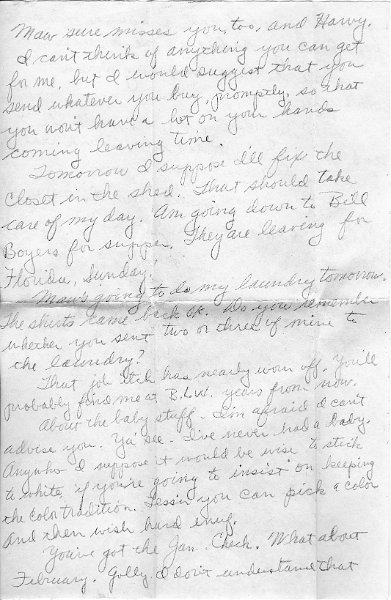 Maw sure misses you, too, and Harvy.
I can't think of anything you can get
for me, but I would suggest that you
send whatever you buy, promptly, so that
you won't have a lot on your hands
coming leaving time.
Tomorrow I suppose I'll fix the
closet in the shed. That should take
care of my day. Am going down to Bill
Boyers for supper. They are leaving for
Florida, Sunday.
Maw's going to do my laundry tomorrow.
The shirts came back ok. Do you remember
whether you sent two or three of mine to
the laundry?
That job itch has nearly worn off. You'll
probably find me at B.L.W. years from now.
About the baby stuff - I'm afraid I can't
advise you. Ya' see - I've never had a baby.
Anyhow I suppose it would be wise to stick
to white, if you're going to insist on keeping
the color tradition. Less'n you can pick a color
and then wish hard enuf.
You've got the Jan. Check. What about
February. Golly I don't understand that